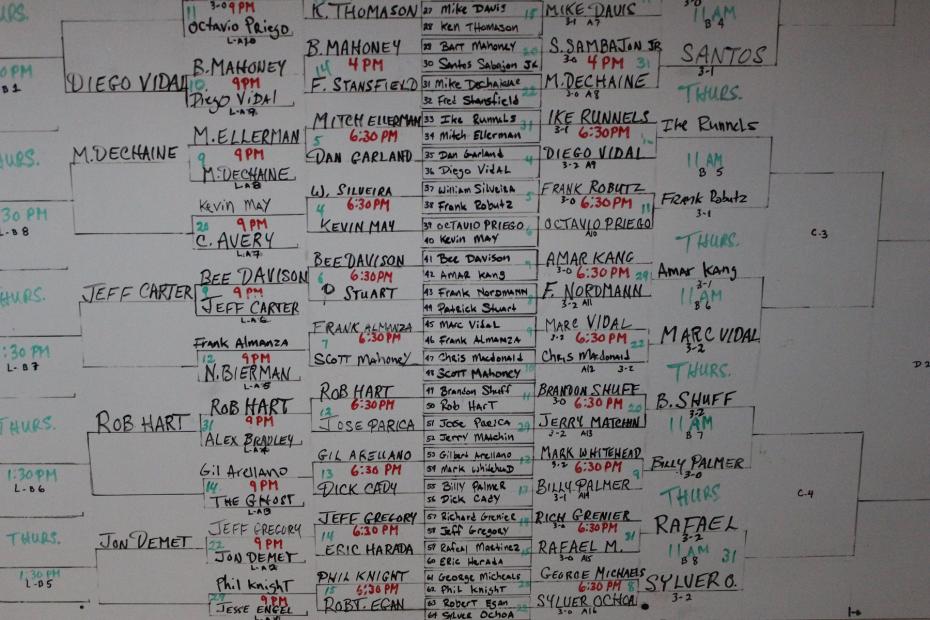 URS.
0 PM
B 1
HURS.
30 PM
L-B 8
HURS.
:30 PM
L-B 7
THURS.
1:30 PM
L-B 6
THURS.
1:30 PM
L-B 5
DIEGO VIDAL
M.DECHAINE
JEFF CARTER
ROB HART
JON DEMET
11
3-0 9 PM
Octavio Priego
L-A10
B.MAHONEY
10 9PM
Diego Vidal
L-A9
M.ELLERMAN
9 9PM
M.DECHAINE
L-A8
Kevin May
20 9 PM
C. AVERY
L-A7
BEE DAVISON
9 9 PM
JEFF CARTER
L-A6
Frank Almanza
12 9PM
N.BIERMAN
L-A5
ROB HART
31 9PM
ALEX BRADLEY
L-A4
Gil Arellano
14 9PM
THE GHOST
L-A3
JEFF GREGORY
22 9PM
JON DEMET
L-A2
Phil Knight
29 9PM
JESSE ENGEL
K. THOMASON
B. MAHONEY
14 4 PM
F. STANSFIELD
MITCH ELLERMAN
5 6:30 PM
DAN GARLAND
W. SILVEIRA
4 6:30 PM
KEVIN MAY
BEE DAVISON
6 6:30PM
STUART
FRANK ALMANZA
7 6:30PM
SCOTT MAHONEY
ROB HART
12 6:30PM
JOSE PARICA
GIL ARELLANO
13 6:30 PM
DICK CADY
JEFF GREGORY
14 6:30 PM
ERIC HARADA
PHIL KNIGHT
15 6:30 PM
ROBT. EGAN
27 Mike Davis 15
28 Ken Thomason
29 Bart Mahoney 20
30 Santos Sabajon Jr.
31 Mike Dechaine 22
32 Fred Stansfield
33 Ike Runnels 31
34 Mitch Ellerman
35 Dan Garland 4
36 Diego Vidal
37 William Silveira 5
38 Frank Robutz
39 OCTAVIO PRIEGO 6
40 Kevin MAY
41 Bee Davison
42 Amar Kang
43 Frank Nordmann
44 Patrick Stuart
45 Marc Vidal 9
46 Frank Almanza
47 Chris Macdonald
48 Scott Mahoney
49 Brandon Shuff 11
50 Rob Hart
51 Jose Parica 29
52 Jerry Matchin
53 Gilbert Arellano
54 Mark Whitehead
55 Billy Palmer
56 Dick Cady
57 Richard Grenier
58 Jeff Gregory
59 Rafael Martinez
60 Eric Harada
61 George Micheals
62 Phil Knight
63 Robert Egan
64 Silver Ochoa
MIKE DAVIS
3-1 A7
S. SAMBAJON JR
3-0 4 PM 31
M.DECHAINE
3-0 A8
IKE RUNNELS
3-1 6:30PM
DIEGO VIDAL
3-2 A9
FRANK ROBUTZ
3-0 6:30 PM 11
OCTAVIO PRIEGO
A10
AMAR KANG
3-0 6:30 PM 29
F. NORDMANN
3-2 A11
MARC VIDAL
3-2 6:30 PM 22
Chris Macdonald
A12 3-2
BRANDON SHUFF
3-0 6:30 PM 20
JERRY MATCHIN
3-2 A13
MARK WHITEHEAD
3-2 6:30PM 9
BILLY PALMER
3-1 A14
RICH GRENIER
3-0 6:30PM 31
RAFAEL M.
3-0 A15
GEORGE MICHAELS
6:30 PM 8
SYLVER OCHOA
3-0 A16
3-0
11AM
B 4
SANTOS
3-1
THURS.
Ike Runnels
11 AM
B 5
Frank Robutz
3-1
THURS.
Amar Kang
3-1
11 AM
B 6
MARC VIDAL
3-2
THURS.
B. SHUFF
3-2
11 AM
B 7
BILLY PALMER
3-0
THURS
RAFAEL
3-2
11 AM 31
B 8
SYLVER O.
3-2
C-3
C-4
D2